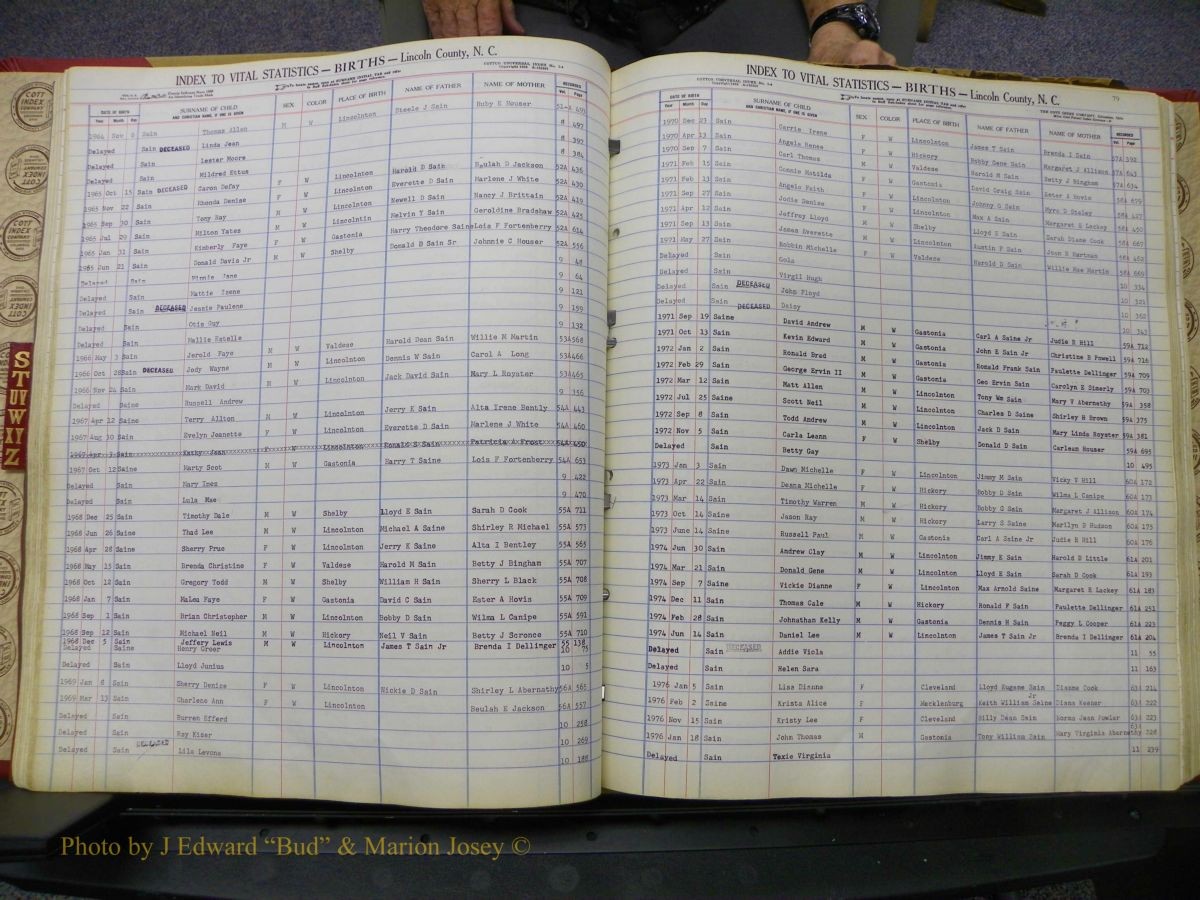 INDEX TO VITAL STATISTICS — BIRTHS — Lincoln County, N. C.
DATE OF BIRTH Year Month Day SURNAME OF CHILD AND CHRISTIAN NAME, IF ONE IS GIVEN SEX COLOR PLACE OF BIRTH NAME OF FATHER NAME OF MOTHER RECORDED Vol. Page
1964 Nov Sain Thomas Allen M W Lincolnton Steele J Sain Ruby E Houser
Delayed Sain DECEASED Linda Jean 8 497
Delayed Sain Lester Moore 8 392
Delayed Sain Mildred Ettus 8 384
1965 Oct 15 Sain DECEASED Caron Defay F W Lincolnton Harold D Sain Beulah D Jackson 52A 436
1965 Nov 22 Sain Rhonda Denise F W Lincolnton Everette D Sain Marlene J White 52A 430
1965 Sep 30 Sain Tony Ray M W Lincolnton Newell D Sain Nancy J Brittain 52A 419
1965 Jul 29 Sain Milton Yates M W Lincolntin Melvin Y Sain Geroldine Bradshaw 52A 425
1965 Jan 31 Sain Kimberly Faye F W Gastonia Harry Theodore Saine Lois F Fortenberry 52A 614
1965 Jun 21 Sain Donald Davis Jr M W Shelby Donald D Sain Sr Johnnie C Houser 52A 556
Delayed Sain Minnie Jane 9 48
Delayed Sain Mattie Irene 9 64
Delayed Sain DECEASED Jennie Paulene 9 121
Delayed Sain Otis Guy 9 159
Delayed Sain Hallie Estelle 9 132
1966 May 3 Sain Jerold Faye M W Valdese Harold Dean Sain Willie M Martin 53A 568
1966 Oct 28 Sain DECEASED Jody Wayne M W Lincolnton Dennis W Sain Carol A Long 53A 466
1966 Nov 24 Sain Mark David M W Lincolnton Jack David Sain Mary L Royster 53A 465
Delayed Saine Russell Andrew 9 356
1967 Apr 12 Saine Terry Allton M W Lincolnton Jerry K Sain Alta Irene Bently 54A 443
1967 Aug 30 Sain Evelyn Jeanette F W Lincolnton Everette D Sain Marlene J White 54A 460
1967 Kathy Jean Ronald S Sain Patricia A Frost
1967 Oct 12 Saine Marty Scot M W Gastonia Harry T Saine Lois F Fortenberry 54A 653
Delayed Sain Mary Inez 9 422
Delayed Sain Lula Mae 9 470
1968 Dec 25 Sain Timothy Dale M W Shelby Lloyd E Sain Sarah D Cook 55A 711
1968 Jun 26 Saine Thad Lee M W Lincolnton Michael A Saine Shirley R Michael 55A 573
1968 Apr 28 Saine Sherry Prue F W Lincolnton Jerry K Saine Alta I Bentley 55A 565
1968 May 15 Sain Brenda Christine F W Valdese Harold M Sain Betty J Bingham 55A 707
1968 Oct 12 Sain Gregory Todd M W Shelby William H Sain Sherry L Black 55A 708
1968 Jan 7 Sain MaLeu Faye F W Gastonia David C Sain Ester A Hovis 55A 709
1968 Sep 1 Sain Brian Christopher M W Lincolnton Bobby D Sain Wilma L Canipe 55A 591
1968 Sep 12 Sain Michael Neil M W Hickory Neil V Sain Betty J Scronce 55A 710
1968 Dec 5 Sain Jeffery Lewis M W Lincolnton James T Sain Jr Brenda I Dellinger 55 138
Delayed Saine Henry Greer 10 75
Delayed Sain Lloyd Junius 10 5
1969 Jan 8 Sain Sherry Denice F W Lincolnton Nickie D Sain Shirley L Abernathy 56A 565
1969 Mar 13 Sain Charlene Ann F W Lincolnton Beulah E Jackson 56A 557
Delayed Sain Burren Efferd 10 258
Delayed Sain Roy Kiser 10 269
Delayed Sain Lila Levona 10 188
INDEX TO VITAL STATISTICS — BIRTHS — Lincoln County, N. C.
79
DATE OF BIRTH Year Month Day SURNAME OF CHILD AND CHRISTIAN NAME, IF ONE IS GIVEN SEX COLOR PLACE OF BIRTH NAME OF FATHER NAME OF MOTHER RECORDED Vol. Page
1970 Dec 23 Sain Carrie Irene F W Lincolnton James T Sain Brenda I Sain 57A 392
1970 Apr 13 Sain Angela Renee F W Hickory Bobby Gene Sain Margaret J Allison 57A 643
1970 Sep 7 Sain Carl Thomas M W Valdese Harold M Sain Betty J Bingham 57A 634
1971 Feb 15 Sain Connie Matilda F W Gastonia David Craig Sain Ester A Hovis 58A 679
1971 Feb 13 Sain Angela Faith F W Lincolnton Johnny G Sain Myra D Sisley 58A 427
1971 Sep 27 Sain Jodie Denise F W Lincolnton Max A Sain Margaret E Lackey 58A 450
1971 Apr 12 Sain Jeffrey Lloyd M W Shelby Lloyd E Sain Sarah Diane Cook 58A 667
1971 Sep 13 Sain James Everette M W Lincolnton Austin F Sain Jean R Hartman 58A 462
1971 May 27 Sain Robbin Michelle F W Valdese Harold D Sain Willie Mae Martin 58A 669
Delayed Sain Gola 10 334
Delayed Sain Virgil Hugh 10 321
Delayed Sain DECEASED John Floyd 10 362
Delayed Sain DECEASED Daisy 10 343
1971 Sep 19 Saine David Andrew M W Gastonia Carl A Saine Jr Judie R Hill 59A 712
1971 Oct 13 Sain Kevin Edward M W Lincolnton John E Sain Jr Christine B Powell 59A 716
1972 Jan 2 Sain Ronald Bred M W Gastonia Ronald Frank Sain Paulette Dellinger 59A 709
1972 Feb 29 Sain George Ervin II M W Gastonia Geo Ervin Sain Carolyn E Simerly 59A 703
1972 Mar 12 Sain Matt Allen M W Lincolnton Tony Wm Sain Mary V Abernethy 59A 358
1972 Jul 25 Saine Scott Neil M W Lincolnton Charles D Saine Shirley H Brown 59A 375
1972 Sep 8 Sain Todd Andrew M W Lincolnton Jack D Sain Mary Linda Royster 59A 381
1972 Nov 5 Sain Carla Leann F W Shelby Donald D Sain Carleen Houser 59A 695
Delayed Sain Betty Gay 10 495
1973 Jan 3 Sain Dawn Michelle F W Lincolnton Jimmy M Sain Vicky V Hill 60A 172
1973 Apr 22 Sain Deanna Michelle F W Hickory Bobby D Sain Wilma L Canipe 60A 173
1973 Mar 14 Sain Timothy Warren M W Hickory Bobby G Sain Margaret J Allison 60A 174
1973 Oct 14 Saine Jason Ray M W Hickory Larry S Saine Marilyn D Hudson 60A 175
1973 June 14 Saine Russell Paul M W Gastonia Carl A Saine Jr Judie R Hill 60A 176
1974 Jun 30 Sain Andrew Clay M W Lincolnton Jimmy K Sain Harold D Little 61A 201
1974 Mar 21 Sain Donald Gene M W Lincolnton Lloyd E Sain Sarah D Cook 61A 193
1974 Sep 7 Saine Vickie Dianne F W Lincolnton Max Arnold Saine Margaret E Lackey 61A 183
1974 Dec 11 Sain Thomas Cale M W Hickory Ronald F Sain Paulette Dellinger 61A 251
1974 Feb 28 Sain Johnathan Kelly M W Gastonia Dennis H Sain Peggy L Cooper 61A 223
1974 Jun 14 Sain Daniel Lee M W Lincolnton James T Sain Jr Brenda I Dellinger 61A 204
Delayed Sain DECEASED Addie Viola 11 55
Delayed Sain Helen Sara 11 163
1976 Jan 5 Sain Lisa Dianne F Cleveland Lloyd Eugene Sain Jr Dianne Cook 63A 214
1976 Feb 2 Saine Krista Alice F Mecklenburg Keith William Saine Diana Keener 63A 222
1976 Nov 15 Sain Kristy Lee F Cleveland Billy Dean Sain Norma Jean Fowler 63A 223
1976 Jan 18 Sain John Thomas M Gastonia Tony William Sain Mary Virginia Abernethy 63A 228
Delayed Sain Texie Virginia 11 239
COTT INDEX COMPANY
S
T
UV
W
XY
Z
Photo by J Edward “Bud” & Marion Josey ©